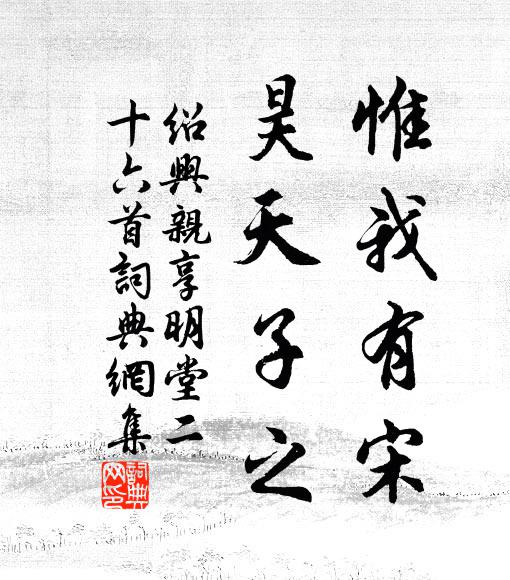 惟我有宋
昊天子之
紹興親享明堂二
十六首詞典網集
詞典網印